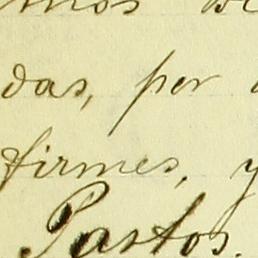 das, por
firmes, y
Pastos.